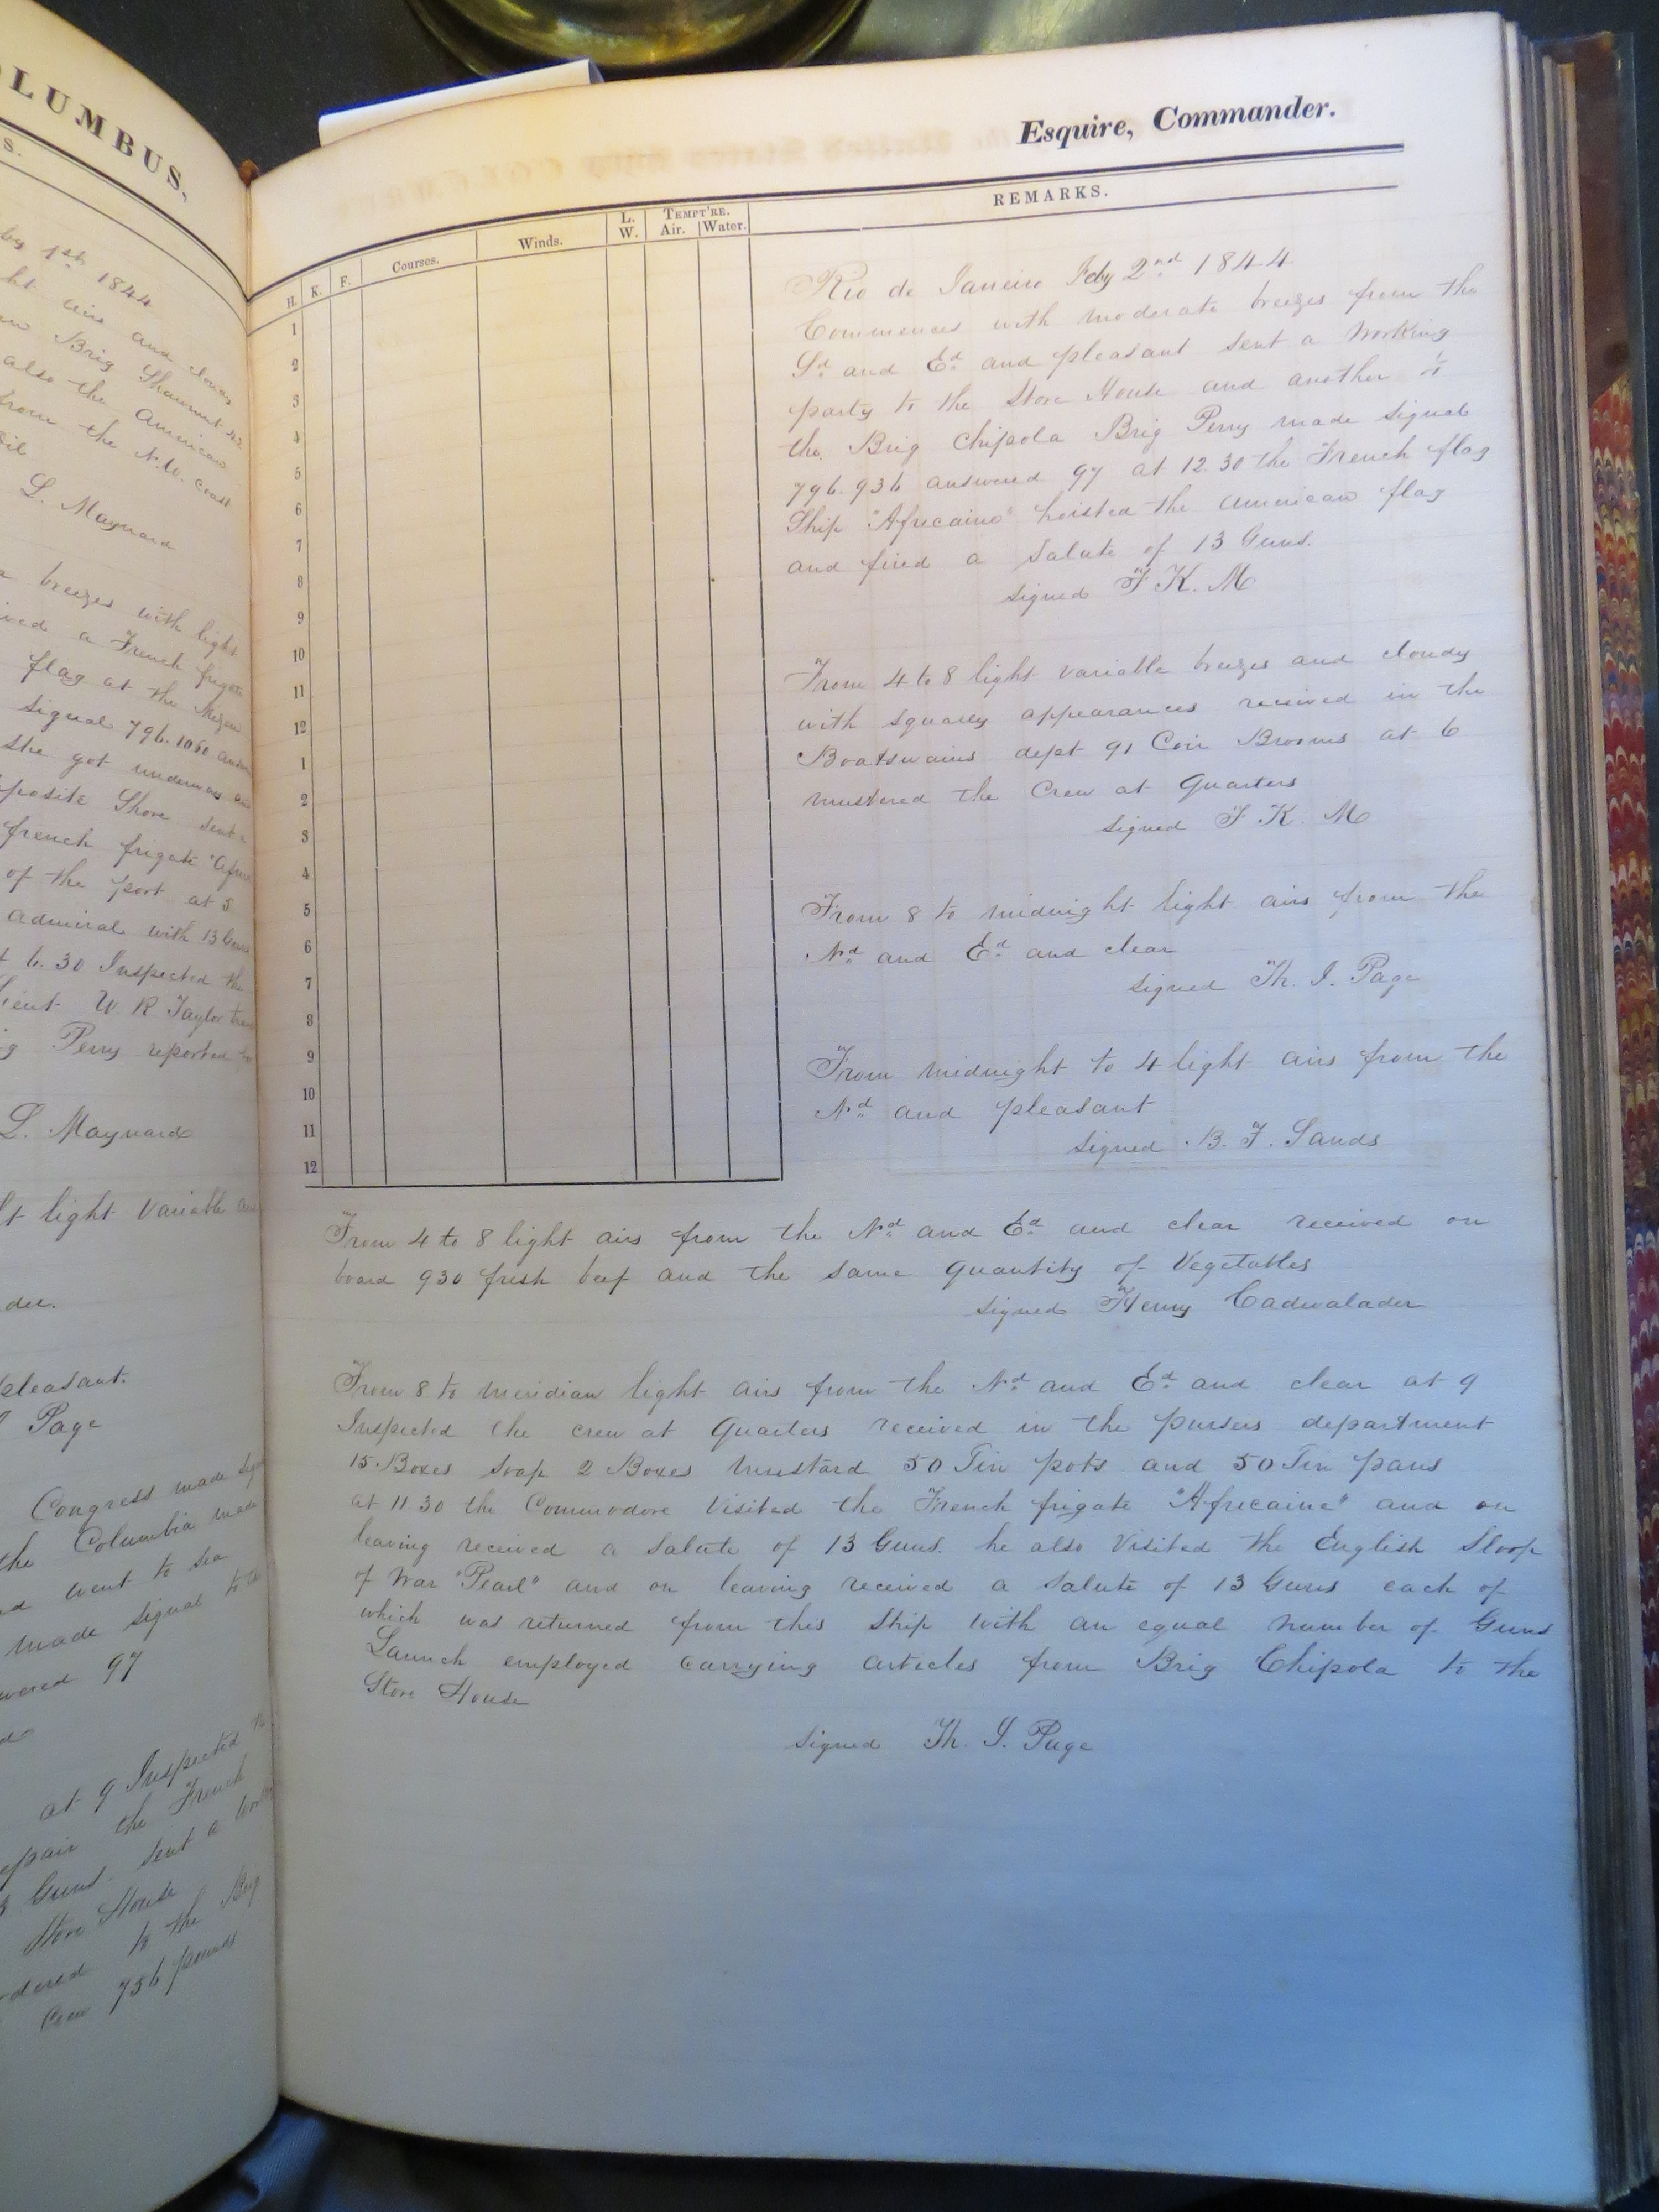 LUMBUS,
S.
by 1st 1844
ht airs and cloudy
Brig Shawmut
also the American
from the N.W. coast
oil
L. Maynard
breezes with light
a French frigate
flag at the Mizen
signal 796. 1050
she got underway
posite Shore sent
french frigate
of the port at 5
admiral with 13 Guns
6. 30 Inspected the
Lieut W. R Taylor
Perry reported
L. Maynard
light variable
der.
pleasant.
Page
Congress made
the Columbia made
went to sea
made signal to the
wered 97
at 9 Inspected
the French
Guns. sent a
Store House
to the Brig
Crew 736 pounds
Esquire, Commander.
H. K. F. Courses. Winds. L. W. Tempt're. Air. Water. REMARKS.
1
2
3
4
5
6
7
8
9
10
11
12
1
2
3
4
5
6
7
8
9
10
11
12
Rio de Janeiro Feby 2nd 1844
Commences with moderate breezes from the
Sd and Ed and pleasant sent a Working
party to the Store House and another to
the Brig Chipola Brig Perry made signal
796. 936 answered 97 at 12.30 the French flag
Ship "Africaine" hoisted the American flag
and fired a salute of 13 Guns.
signed F K. M
From 4 to 8 light variable breezes and cloudy
with squarly appearances received in the
Boatswains dept 91 Coir Brooms at 6
mustered the Crew at Quarters
signed F K. M
From 8 to midnight light airs from the
Nd and Ed and clear
signed Th. J. Page
From midnight to 4 light airs from the
Nd and pleasant
signed B. F. Sands
From 4 to 8 light airs from the Nd and Ed and clear received on
board 930 fresh beef and the same quantity of Vegetables
signed Henry Cadwalader
From 8 to meridian light airs from the Nd and Ed and clear at 9
Inspected the crew at Quarters received in the pursers department
15 Boxes soap 2 Boxes mustard 50 Tin pots and 50 Tin pans
at 11 30 the Commodore Visited the French frigate "Africaine" and on
leaving received a salute of 13 Guns. he also Visited the English Sloop
of War "Pearl" and on leaving received a salute of 13 Guns each of
which was returned from this Ship with an equal number of Guns
Launch employed carrying articles from Brig Chipola to the
Store House
signed Th. J. Page